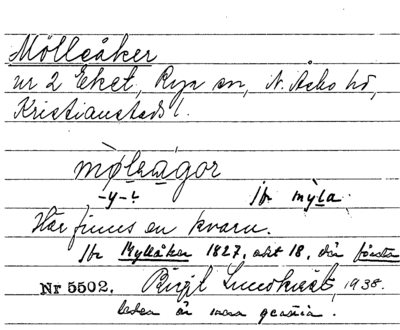 Mölleåker
ur 2 Eket, Rya sn, N. Åsbo hd,
Kristianstads l.
mølrågor
-y- jfr myla.
Här finns en kvarn.
Jfr Mylleåker 1827, akt 18, där första
Nr 5502. Birgit Lundkvist, 1938.
leden är